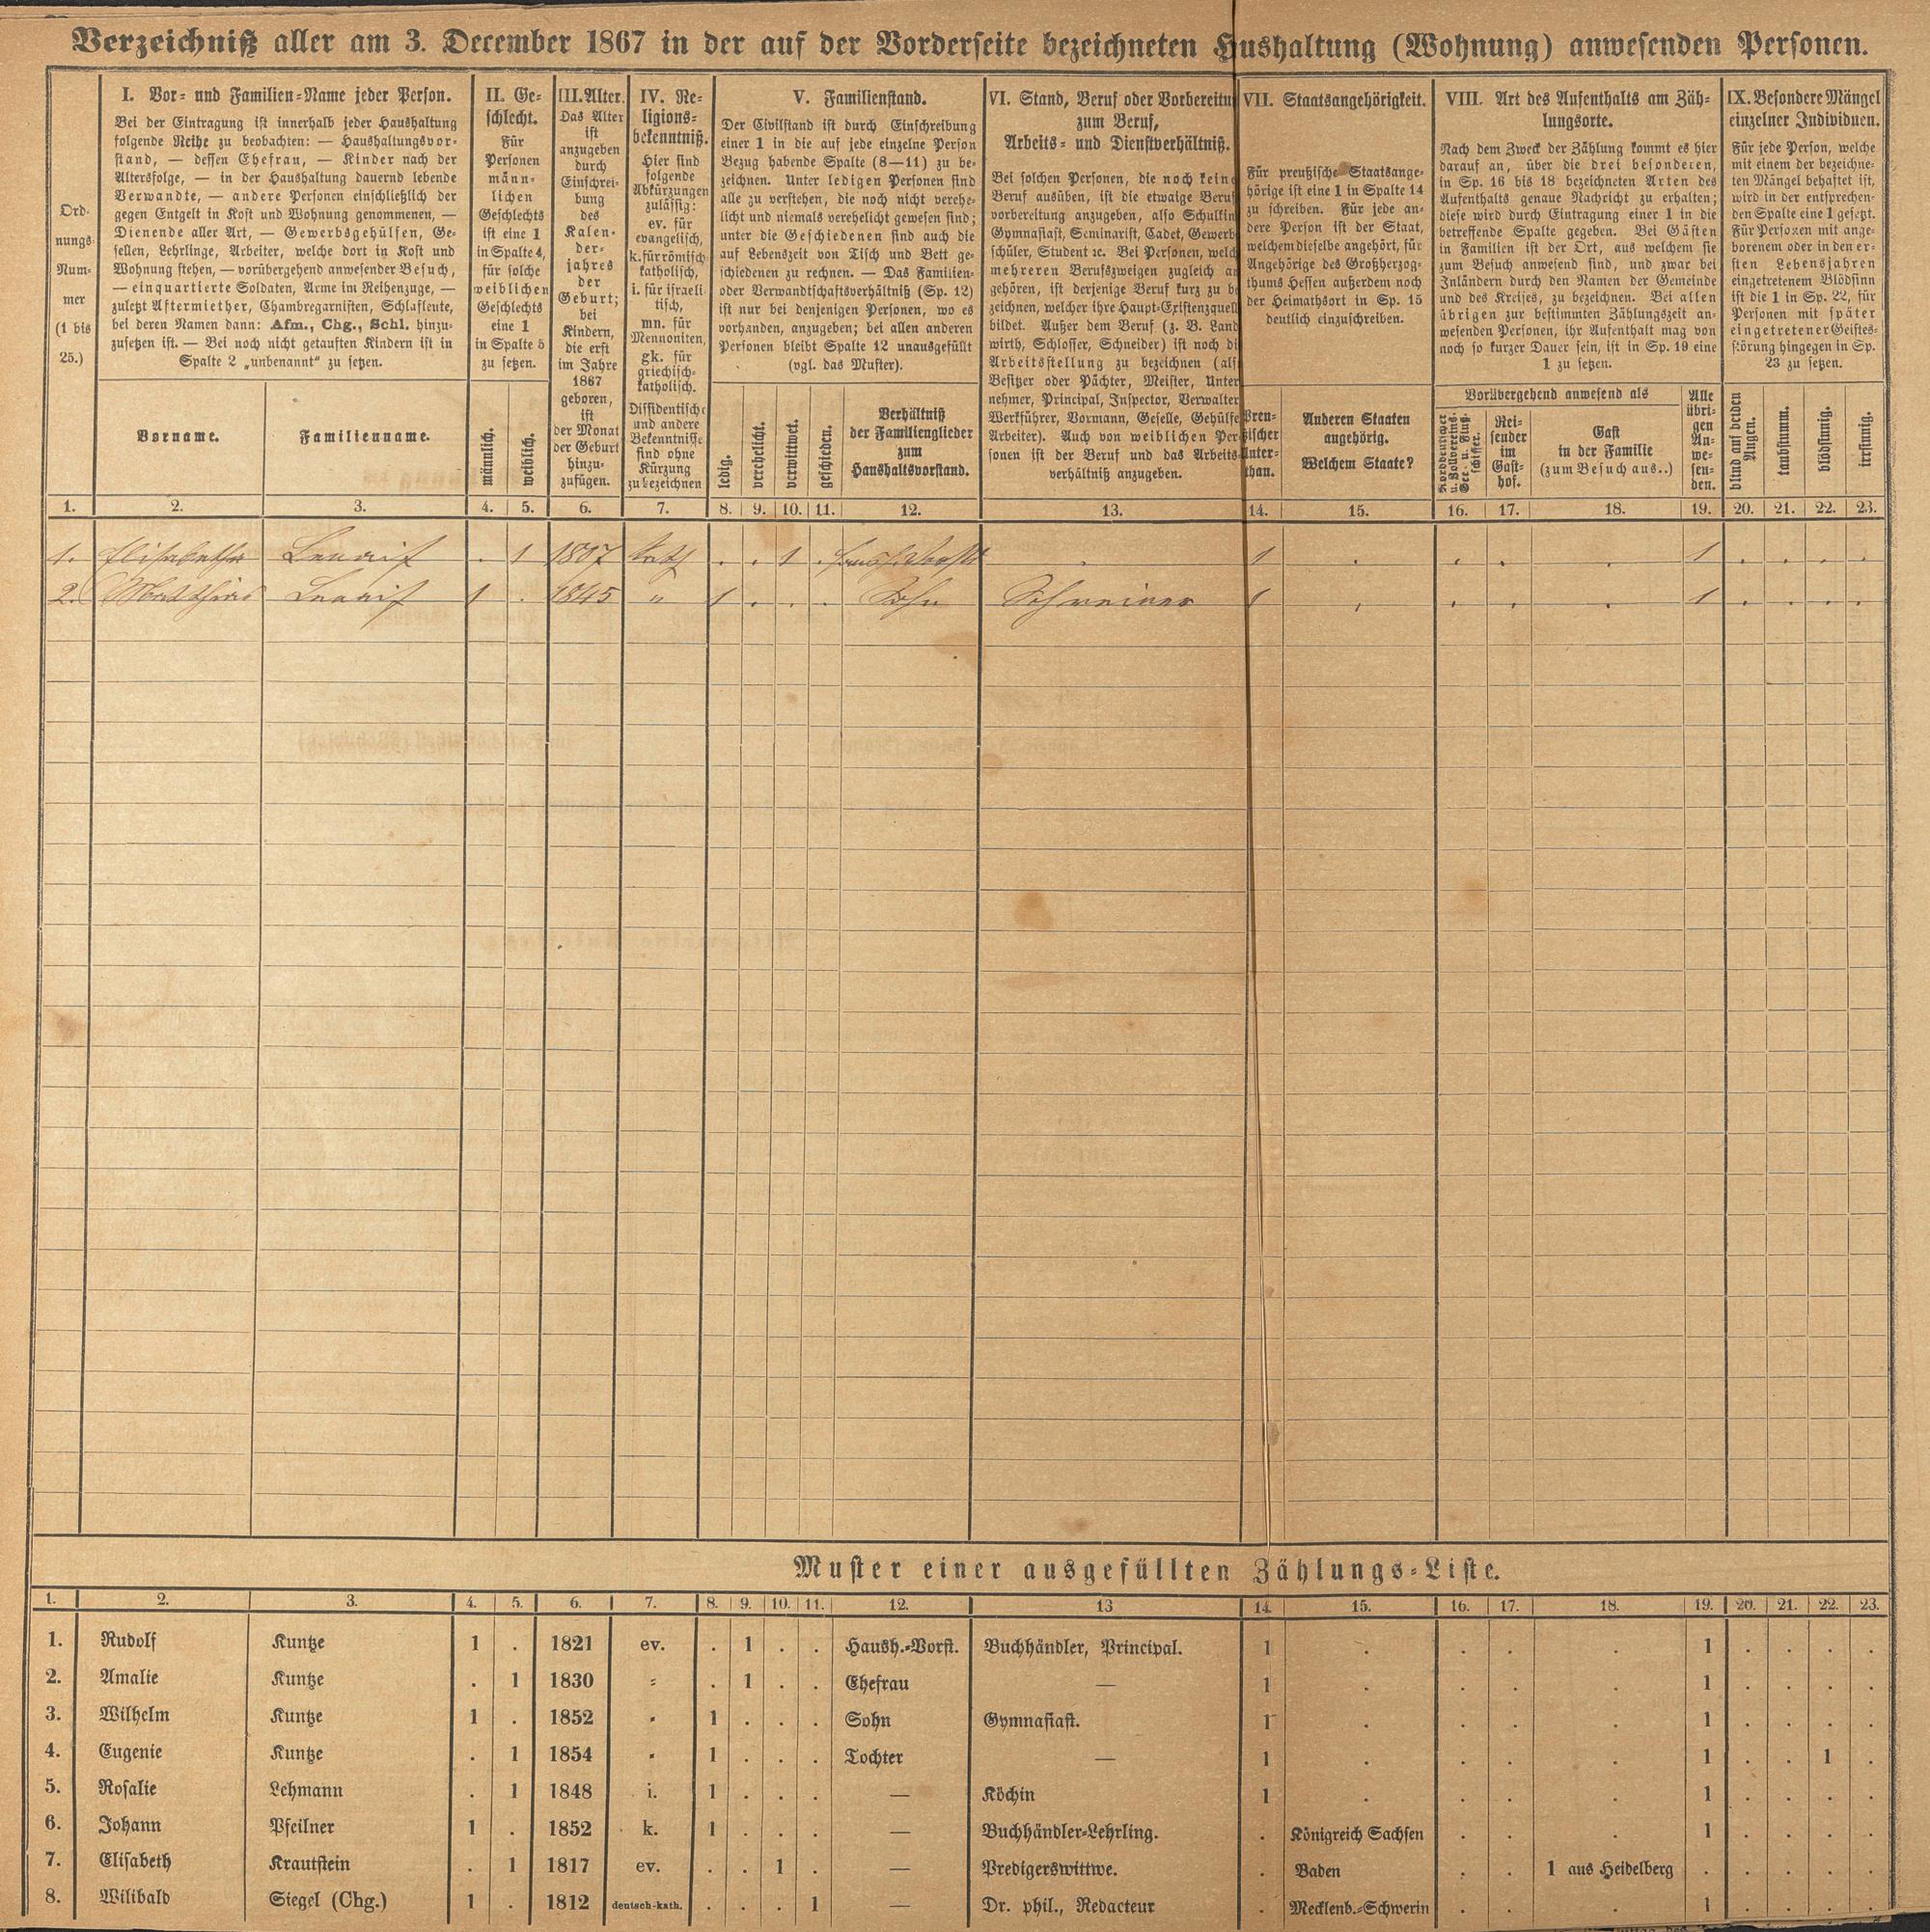 Verzeichniß aller am 3. December 1867 in der auf der Vorderseite bezeichneten Hushaltung (Wohnung) anwesenden Personen.
Ord-
nungs-
Num-
mer
(1 bis
25.)
I. Vor- und Familien-Name jeder Person.
Bei der Eintragung ist innerhalb jeder Haushaltung
folgende Reihe zu beobachten: — Haushaltungsvor-
stand, — dessen Ehefrau, — Kinder nach der
Altersfolge, — in der Haushaltung dauernd lebende
Verwandte, — andere Personen einschließlich der
gegen Entgelt in Kost und Wohnung genommenen, —
Dienende aller Art, — Gewerbsgehülfen, Ge-
sellen, Lehrlinge, Arbeiter, welche dort in Kost und
Wohnung stehen, — vorübergehend anwesender Besuch,
— einquartierte Soldaten, Arme im Reihenzuge, —
zuletzt Aftermiether, Chambregarnisten, Schlafleute,
bei deren Namen dann: Afm., Chg., Schl. hinzu-
zusetzen ist. — Bei noch nicht getauften Kindern ist in
Spalte 2 „unbenannt“ zu setzen.
Vorname.
Familienname.
II. Ge-
schlecht.
Für
Personen
männ-
lichen
Geschlechts
ist eine 1
in Spalte 4,
für solche
weiblichen
Geschlechts
eine 1
in Spalte 5
zu setzen.
männlich.
weiblich.
III. Alter.
Das Alter
ist
anzugeben
durch
Einschrei-
bung
des
Kalen-
der-
jahres
der
Geburt;
bei
Kindern,
die erst
im Jahre
1867
geboren,
ist
der Monat
der Geburt
hinzu-
zufügen.
IV. Re-
ligions-
bekenntniß.
Hier sind
folgende
Abkürzungen
zulässig:
ev. für
evangelisch,
k. für römisch-
katholisch,
i. für israeli-
tisch,
mn. für
Mennoniten,
gk. für
griechisch-
katholisch.
Dissidentische
und andere
Bekenntnisse
sind ohne
Kürzung
zu bezeichnen
V. Familienstand.
Der Civilstand ist durch Einschreibung
einer 1 in die auf jede einzelne Person
Bezug habende Spalte (8—11) zu be-
zeichnen. Unter ledigen Personen sind
alle zu verstehen, die noch nicht verehe-
licht und niemals verehelicht gewesen sind;
unter die Geschiedenen sind auch die
auf Lebenszeit von Tisch und Bett ge-
schiedenen zu rechnen. — Das Familien-
oder Verwandtschaftsverhältniß (Sp. 12)
ist nur bei denjenigen Personen, wo es
vorhanden, anzugeben; bei allen anderen
Personen bleibt Spalte 12 unausgefüllt
(vgl. das Muster).
ledig.
verehelicht.
verwittwet.
geschieden.
Verhältniß
der Familienglieder
zum
Haushaltsvorstand.
VI. Stand, Beruf oder Vorbereitu
zum Beruf,
Arbeits- und Dienstverhältniß.
Bei solchen Personen, die noch kein
Beruf ausüben, ist die etwaige Beruf
vorbereitung anzugeben, also Schullin
Gymnasiast, Seminarist, Cadet, Gewerb
schüler, Student ꝛc. Bei Personen, welch
mehreren Berufszweigen zugleich an
gehören, ist derjenige Beruf kurz zu be
zeichnen, welcher ihre Haupt-Existenzquell
bildet. Außer dem Beruf (z. B. Land
wirth, Schlosser, Schneider) ist noch di
Arbeitsstellung zu bezeichnen (als
Besitzer oder Pächter, Meister, Unter
nehmer, Principal, Inspector, Verwalter
Werkführer, Vormann, Geselle, Gehülfe
Arbeiter). Auch von weiblichen Per
sonen ist der Beruf und das Arbeits-
verhältniß anzugeben.
VII. Staatsangehörigkeit.
Für preußische Staatsange-
hörige ist eine 1 in Spalte 14
zu schreiben. Für jede an-
dere Person ist der Staat,
welchem dieselbe angehört, für
Angehörige des Großherzog-
thums Hessen außerdem noch
der Heimathsort in Sp. 15
deutlich einzuschreiben.
Preu-
ßischer
Unter-
than.
Anderen Staaten
angehörig.
Welchem Staate?
VIII. Art des Aufenthalts am Zäh-
lungsorte.
Nach dem Zweck der Zählung kommt es hier
darauf an, über die drei besonderen,
in Sp. 16 bis 18 bezeichneten Arten des
Aufenthalts genaue Nachricht zu erhalten;
diese wird durch Eintragung einer 1 in die
betreffende Spalte gegeben. Bei Gästen
in Familien ist der Ort, aus welchem sie
zum Besuch anwesend sind, und zwar bei
Inländern durch den Namen der Gemeinde
und des Kreises, zu bezeichnen. Bei allen
übrigen zur bestimmten Zählungszeit an-
wesenden Personen, ihr Aufenthalt mag von
noch so kurzer Dauer sein, ist in Sp. 19 eine
1 zu setzen.
Vorübergehend anwesend als
Norddeutscher
u. Zollvereins-
See- u. Fluß-
schiffer.
Rei-
sender
im
Gast-
hof.
Gast
in der Familie
(zum Besuch aus..)
Alle
übri-
gen
An-
we-
sen-
den.
IX. Besondere Mängel
einzelner Individuen.
Für jede Person, welche
mit einem der bezeichne-
ten Mängel behaftet ist,
wird in der entsprechen-
den Spalte eine 1 gesetzt.
Für Personen mit ange-
borenem oder in den er-
sten Lebensjahren
eingetretenem Blödsinn
ist die 1 in Sp. 22, für
Personen mit später
eingetretener Geistes-
störung hingegen in Sp.
23 zu setzen.
blind auf beiden
Augen.
taubstumm.
blödsinnig.
irrsinnig.
1. 2. 3. 4. 5. 6. 7. 8. 9. 10. 11. 12. 13. 14. 15. 16. 17. 18. 19. 20. 21. 22. 23.
1. Elisabetha . 1 1807 kath . . 1 . . 1 . . . . 1 . . . .
2. Matthias 1 . 1845 " 1 . . . Sohn Schreiner 1 . . . . 1 . . . .
Muster einer ausgefüllten Zählungs-Liste.
1. 2. 3. 4. 5. 6. 7. 8. 9. 10. 11. 12. 13 14. 15. 16. 17. 18. 19. 20. 21. 22. 23.
1. Rudolf Kuntze 1 . 1821 ev. . 1 . . Haush.-Vorst. Buchhändler, Principal. 1 . . . . 1 . . . .
2. Amalie Kuntze . 1 1830 " . 1 . . Ehefrau — 1 . . . . 1 . . . .
3. Wilhelm Kuntze 1 . 1852 " 1 . . . Sohn Gymnasiast. 1 . . . . 1 . . . .
4. Eugenie Kuntze . 1 1854 " 1 . . . Tochter — 1 . . . . 1 . . 1 .
5. Rosalie Lehmann . 1 1848 i. 1 . . . — Köchin 1 . . . . 1 . . . .
6. Johann Pfeilner 1 . 1852 k. 1 . . . — Buchhändler-Lehrling. . Königreich Sachsen . . . 1 . . . .
7. Elisabeth Krautstein . 1 1817 ev. . . 1 . — Predigerswittwe. . Baden . . 1 aus Heidelberg . . . . .
8. Wilibald Siegel (Chg.) 1 . 1812 deutsch-kath. . . . 1 — Dr. phil., Redacteur . Mecklenb.-Schwerin . . . 1 . . . .